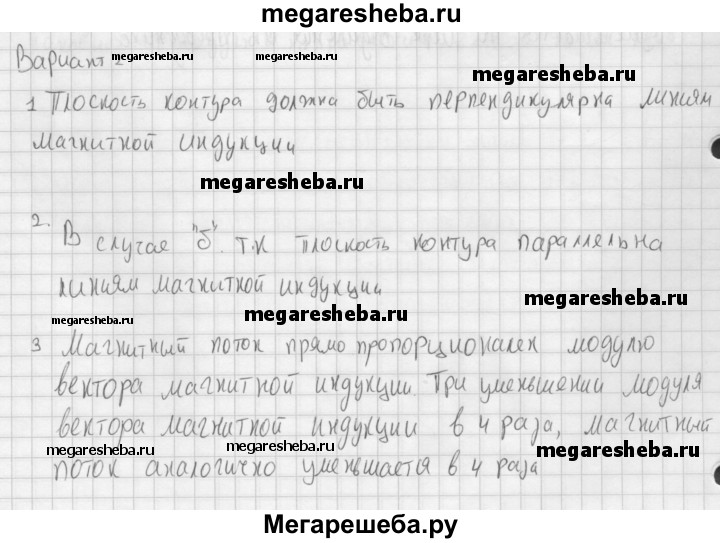 megaresheba.ru
Вариант megaresheba.ru megaresheba.ru
megaresheba.ru
1 Плоскость контура должна быть перпендикулярна линиям
магнитной индукции
megaresheba.ru
2. В случае "б". т.к плоскость контура параллельна
линиям магнитной индукции
megaresheba.ru
megaresheba.ru megaresheba.ru
3 Магнитный поток прямо пропорционален модулю
вектора магнитной индукции. При уменьшении модуля
вектора магнитной индукции в 4 раза, магнитный
megaresheba.ru megaresheba.ru megaresheba.ru
поток аналогично уменьшается в 4 раза
Мегарешеба.ру